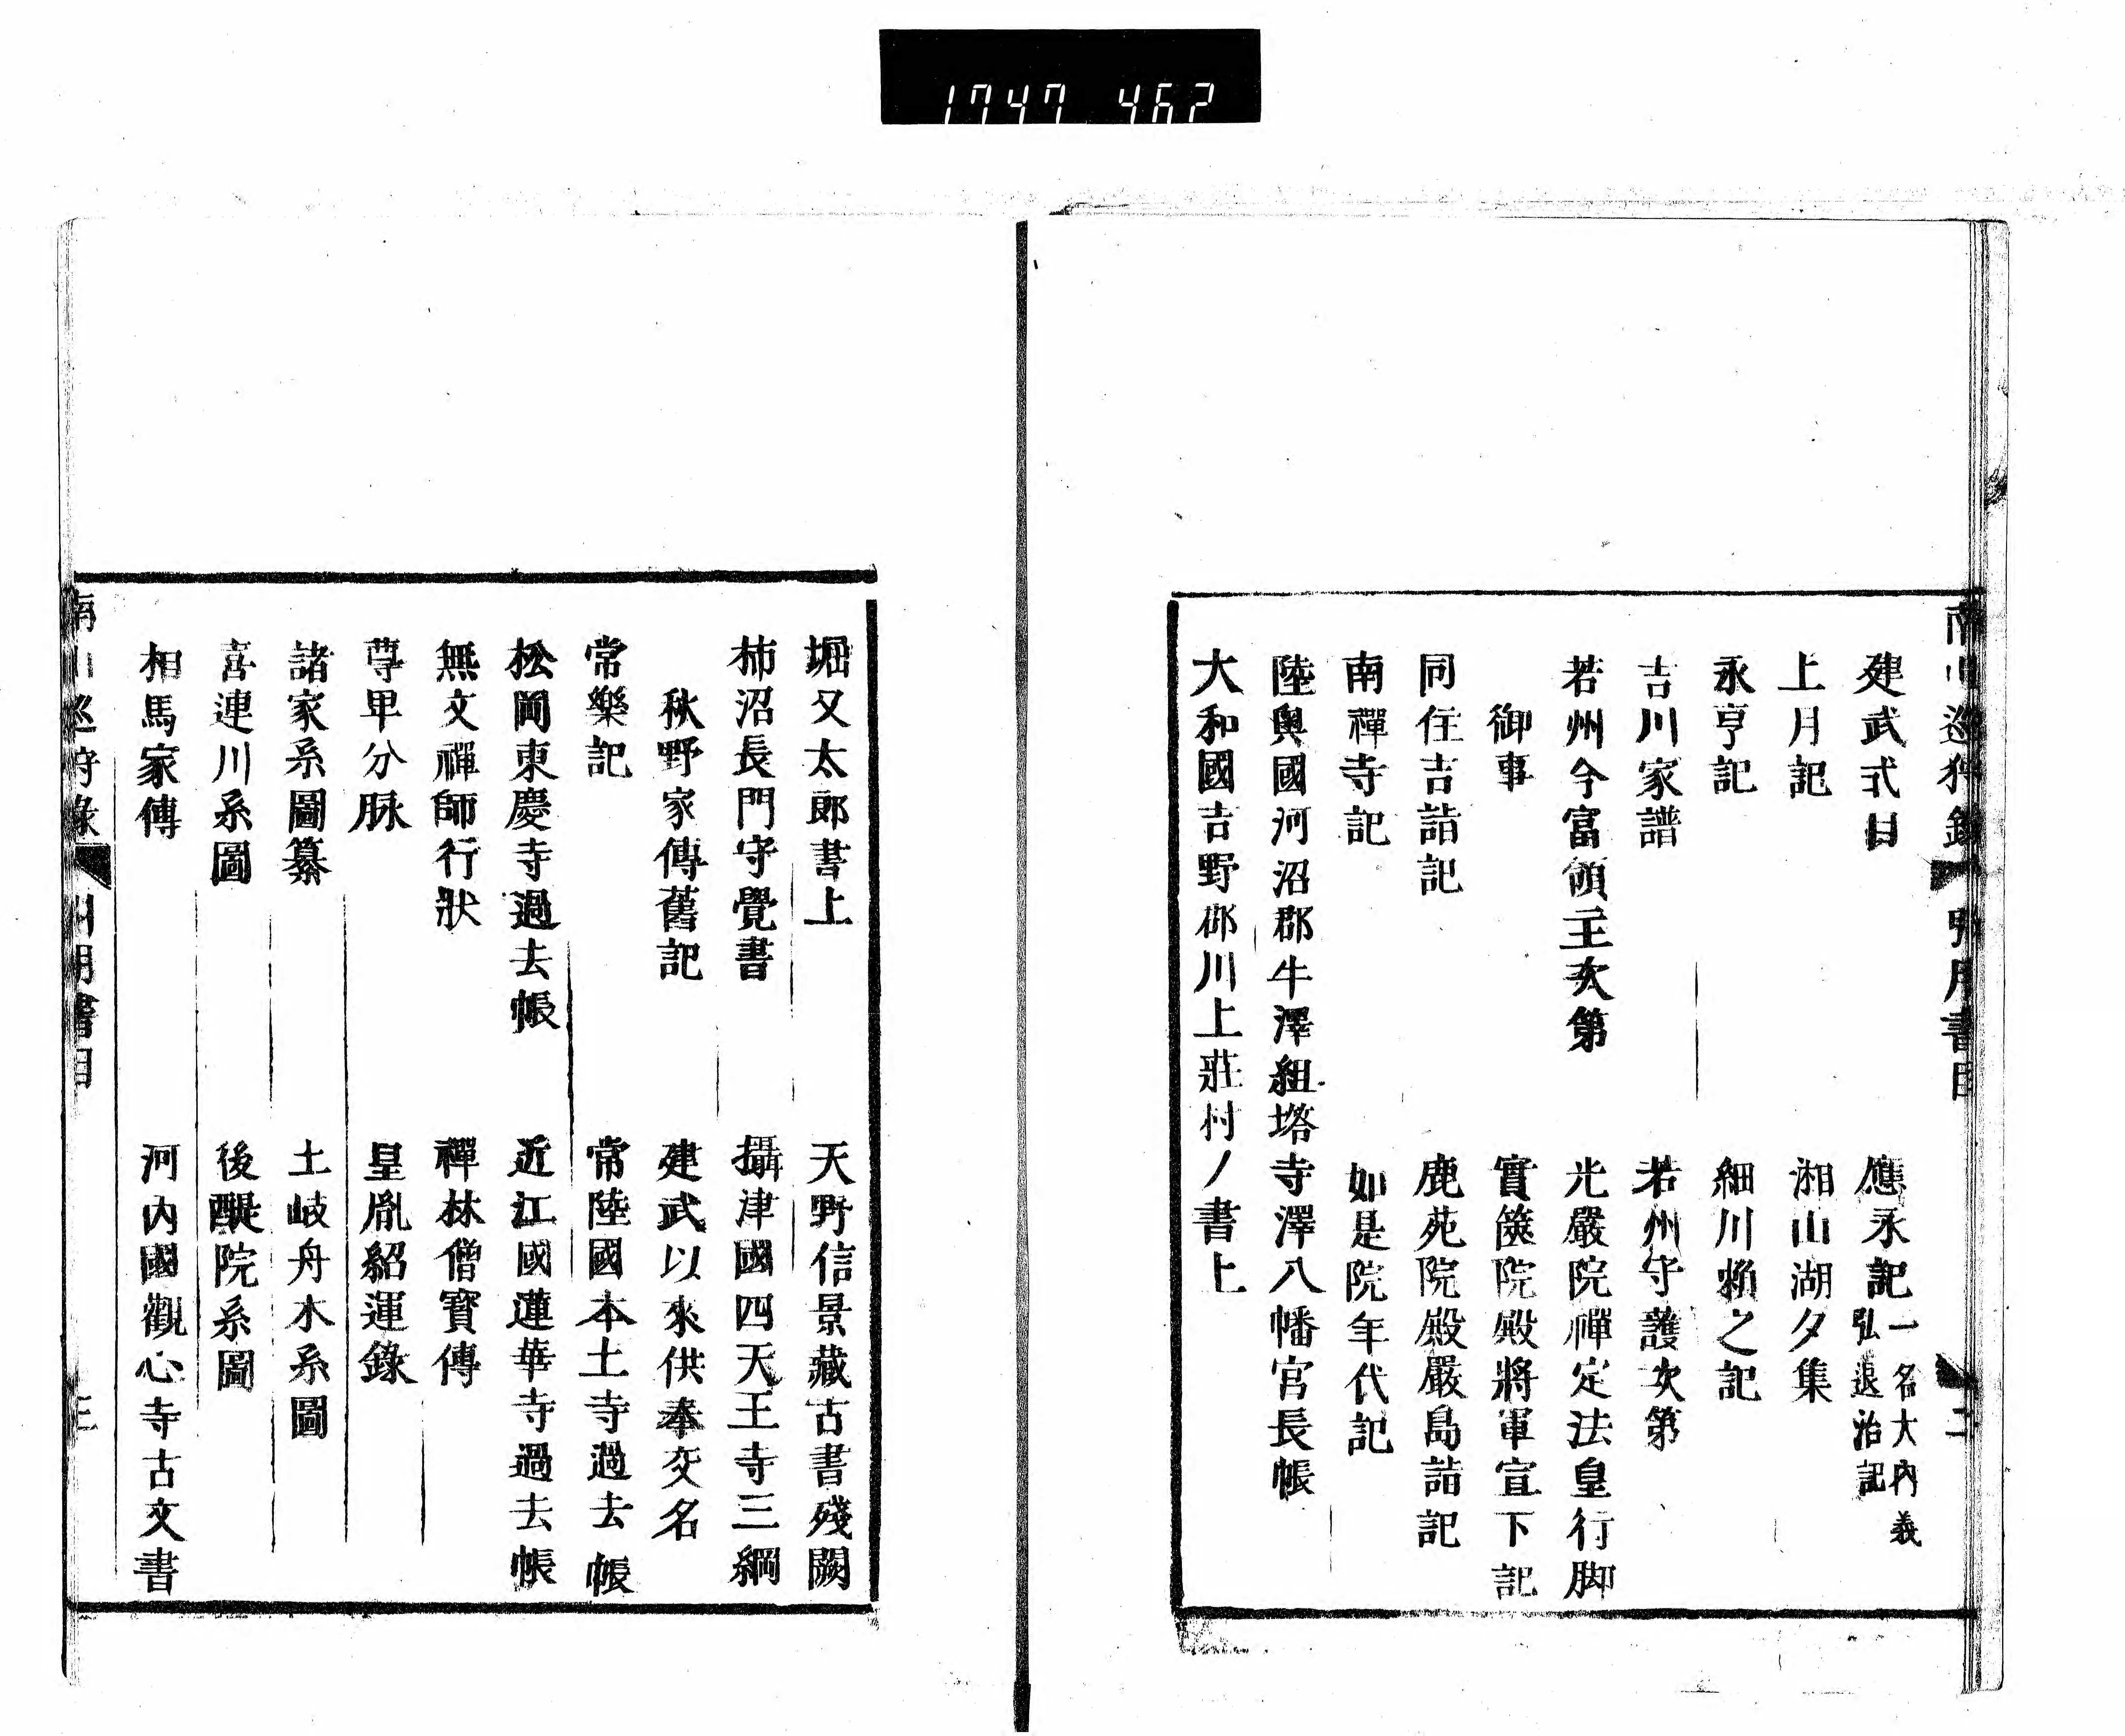 1747 462
南山巡狩錄 引用書目 二
建武式目 應永記 一名大內義弘退治記
上月記 湘山湖夕集
永亨記 細川賴之記
吉川家譜 若州守護次第
若州今富領主次第 光嚴院禪定法皇行脚
御事 實篋院殿將軍宣下記
同住吉詣記 鹿苑院殿嚴島詣記
南禪寺記 如是院年代記
陸奧國河沼郡牛澤組塔寺澤八幡宮長帳
大和國吉野郡川上莊村ノ書上
堀又太郎書上 天野信景藏古書殘闕
柿沼長門守覺書 攝津國四天王寺三綱
秋野家傳舊記 建武以來供奉交名
常樂記 常陸國本土寺過去帳
松岡東慶寺過去帳 近江國蓮華寺過去帳
無文禪師行狀 禪林僧寶傳
尊卑分脉 皇胤紹運錄
諸家系圖纂 土岐舟木系圖
喜連川系圖 後醍院系圖
相馬家傳 河內國觀心寺古文書
南山巡狩錄 引用書目 三